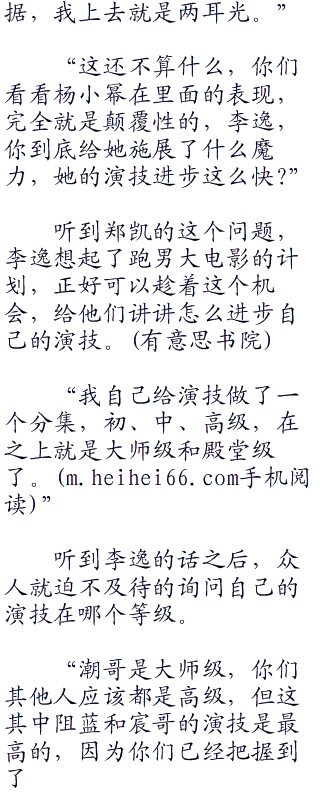 据，我上去就是两耳光。”
“这还不算什么，你们
看看杨小幂在里面的表现，
完全就是颠覆性的，李逸，
你到底给她施展了什么魔
力，她的演技进步这么快?”
听到郑凯的这个问题，
李逸想起了跑男大电影的计
划，正好可以趁着这个机
会，给他们讲讲怎么进步自
己的演技。(有意思书院)
“我自己给演技做了一
个分集，初、中、高级，在
之上就是大师级和殿堂级
了。(m.heihei66.com手机阅
读)”
听到李逸的话之后，众
人就迫不及待的询问自己的
演技在哪个等级。
“潮哥是大师级，你们
其他人应该都是高级，但这
其中阻蓝和宸哥的演技是最
高的，因为你们已经把握到
了